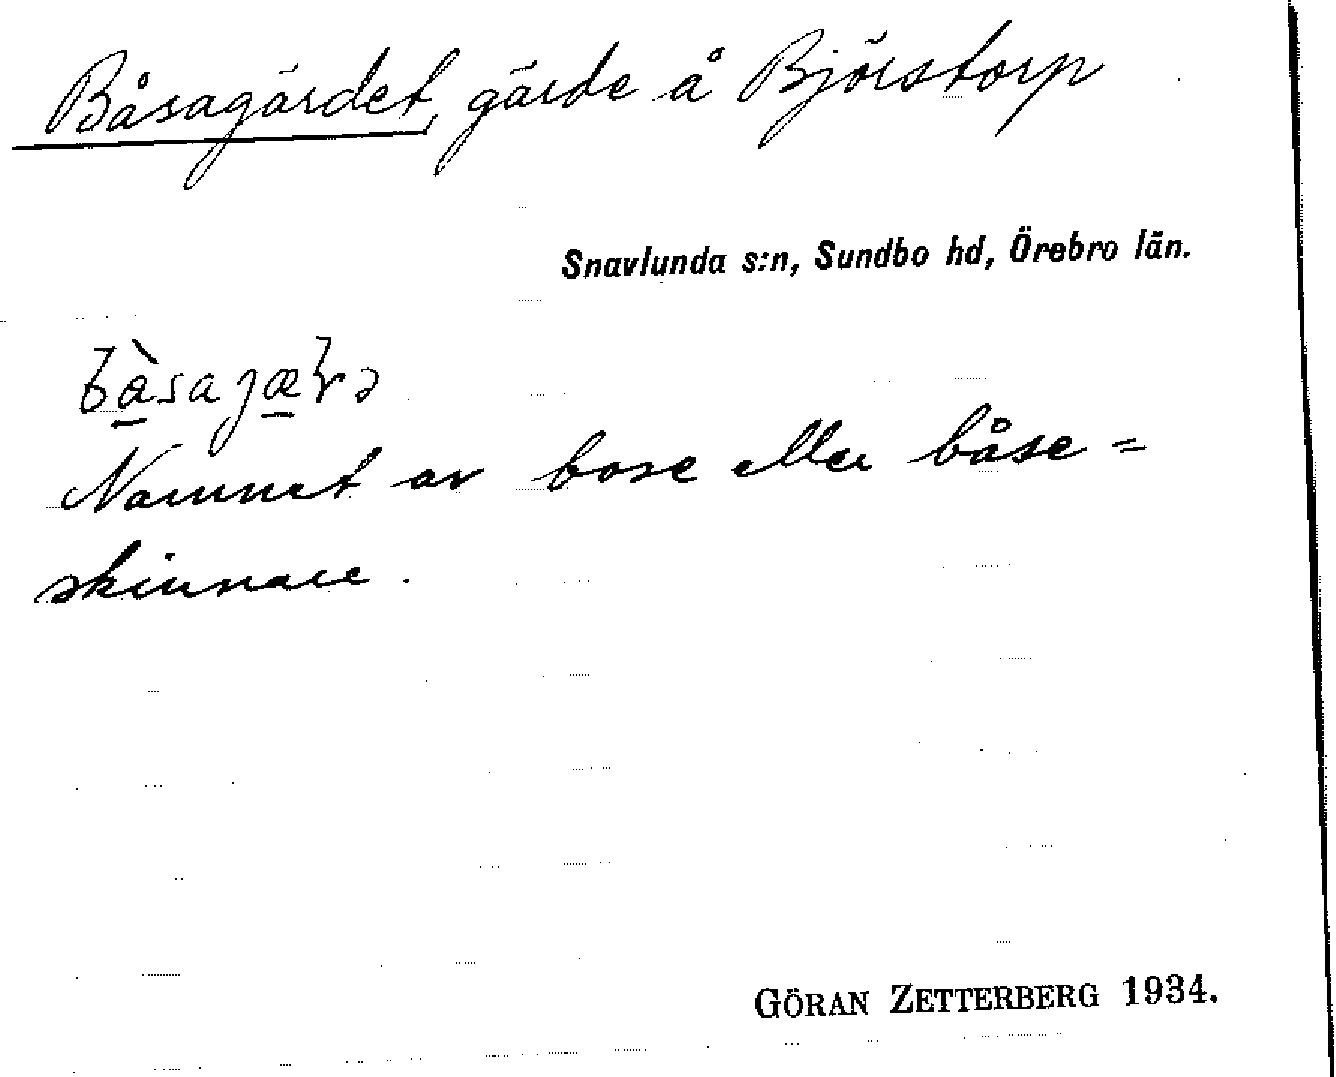 Båsagärdet, gärde å Björstorp
Snavlunda s:n, Sundbo hd, Örebro län.
Namnet av bose eller båse=
skinnare.
GÖRAN ZETTERBERG 1934.